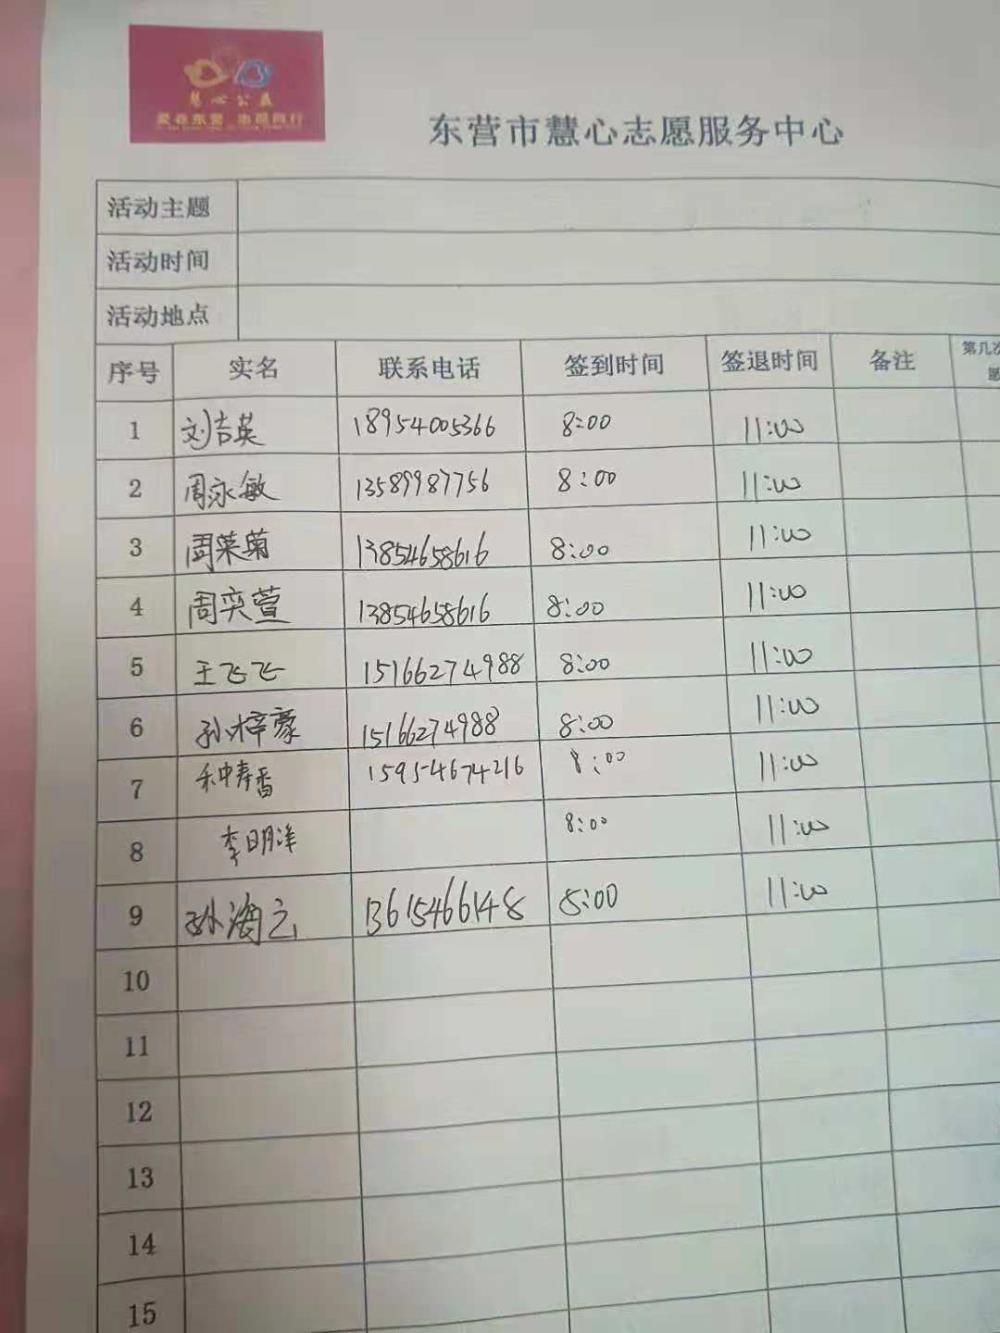 慧心公益
爱在东营 志愿同行
东营市慧心志愿服务中心
活动主题
活动时间
活动地点
序号 实名 联系电话 签到时间 签退时间 备注 第几次
1 刘吉英 18954005366 8:00 11:00
2 周永敏 13589987756 8:00 11:00
3 周莱菊 13854658616 8:00 11:00
4 周奕萱 13854658616 8:00 11:00
5 王飞飞 15166274988 8:00 11:00
6 孙梓豪 15166274988 8:00 11:00
7 种寿香 15954674216 8:00 11:00
8 李明洋 8:00 11:00
9 孙海云 13615466148 8:00 11:00
10
11
12
13
14
15